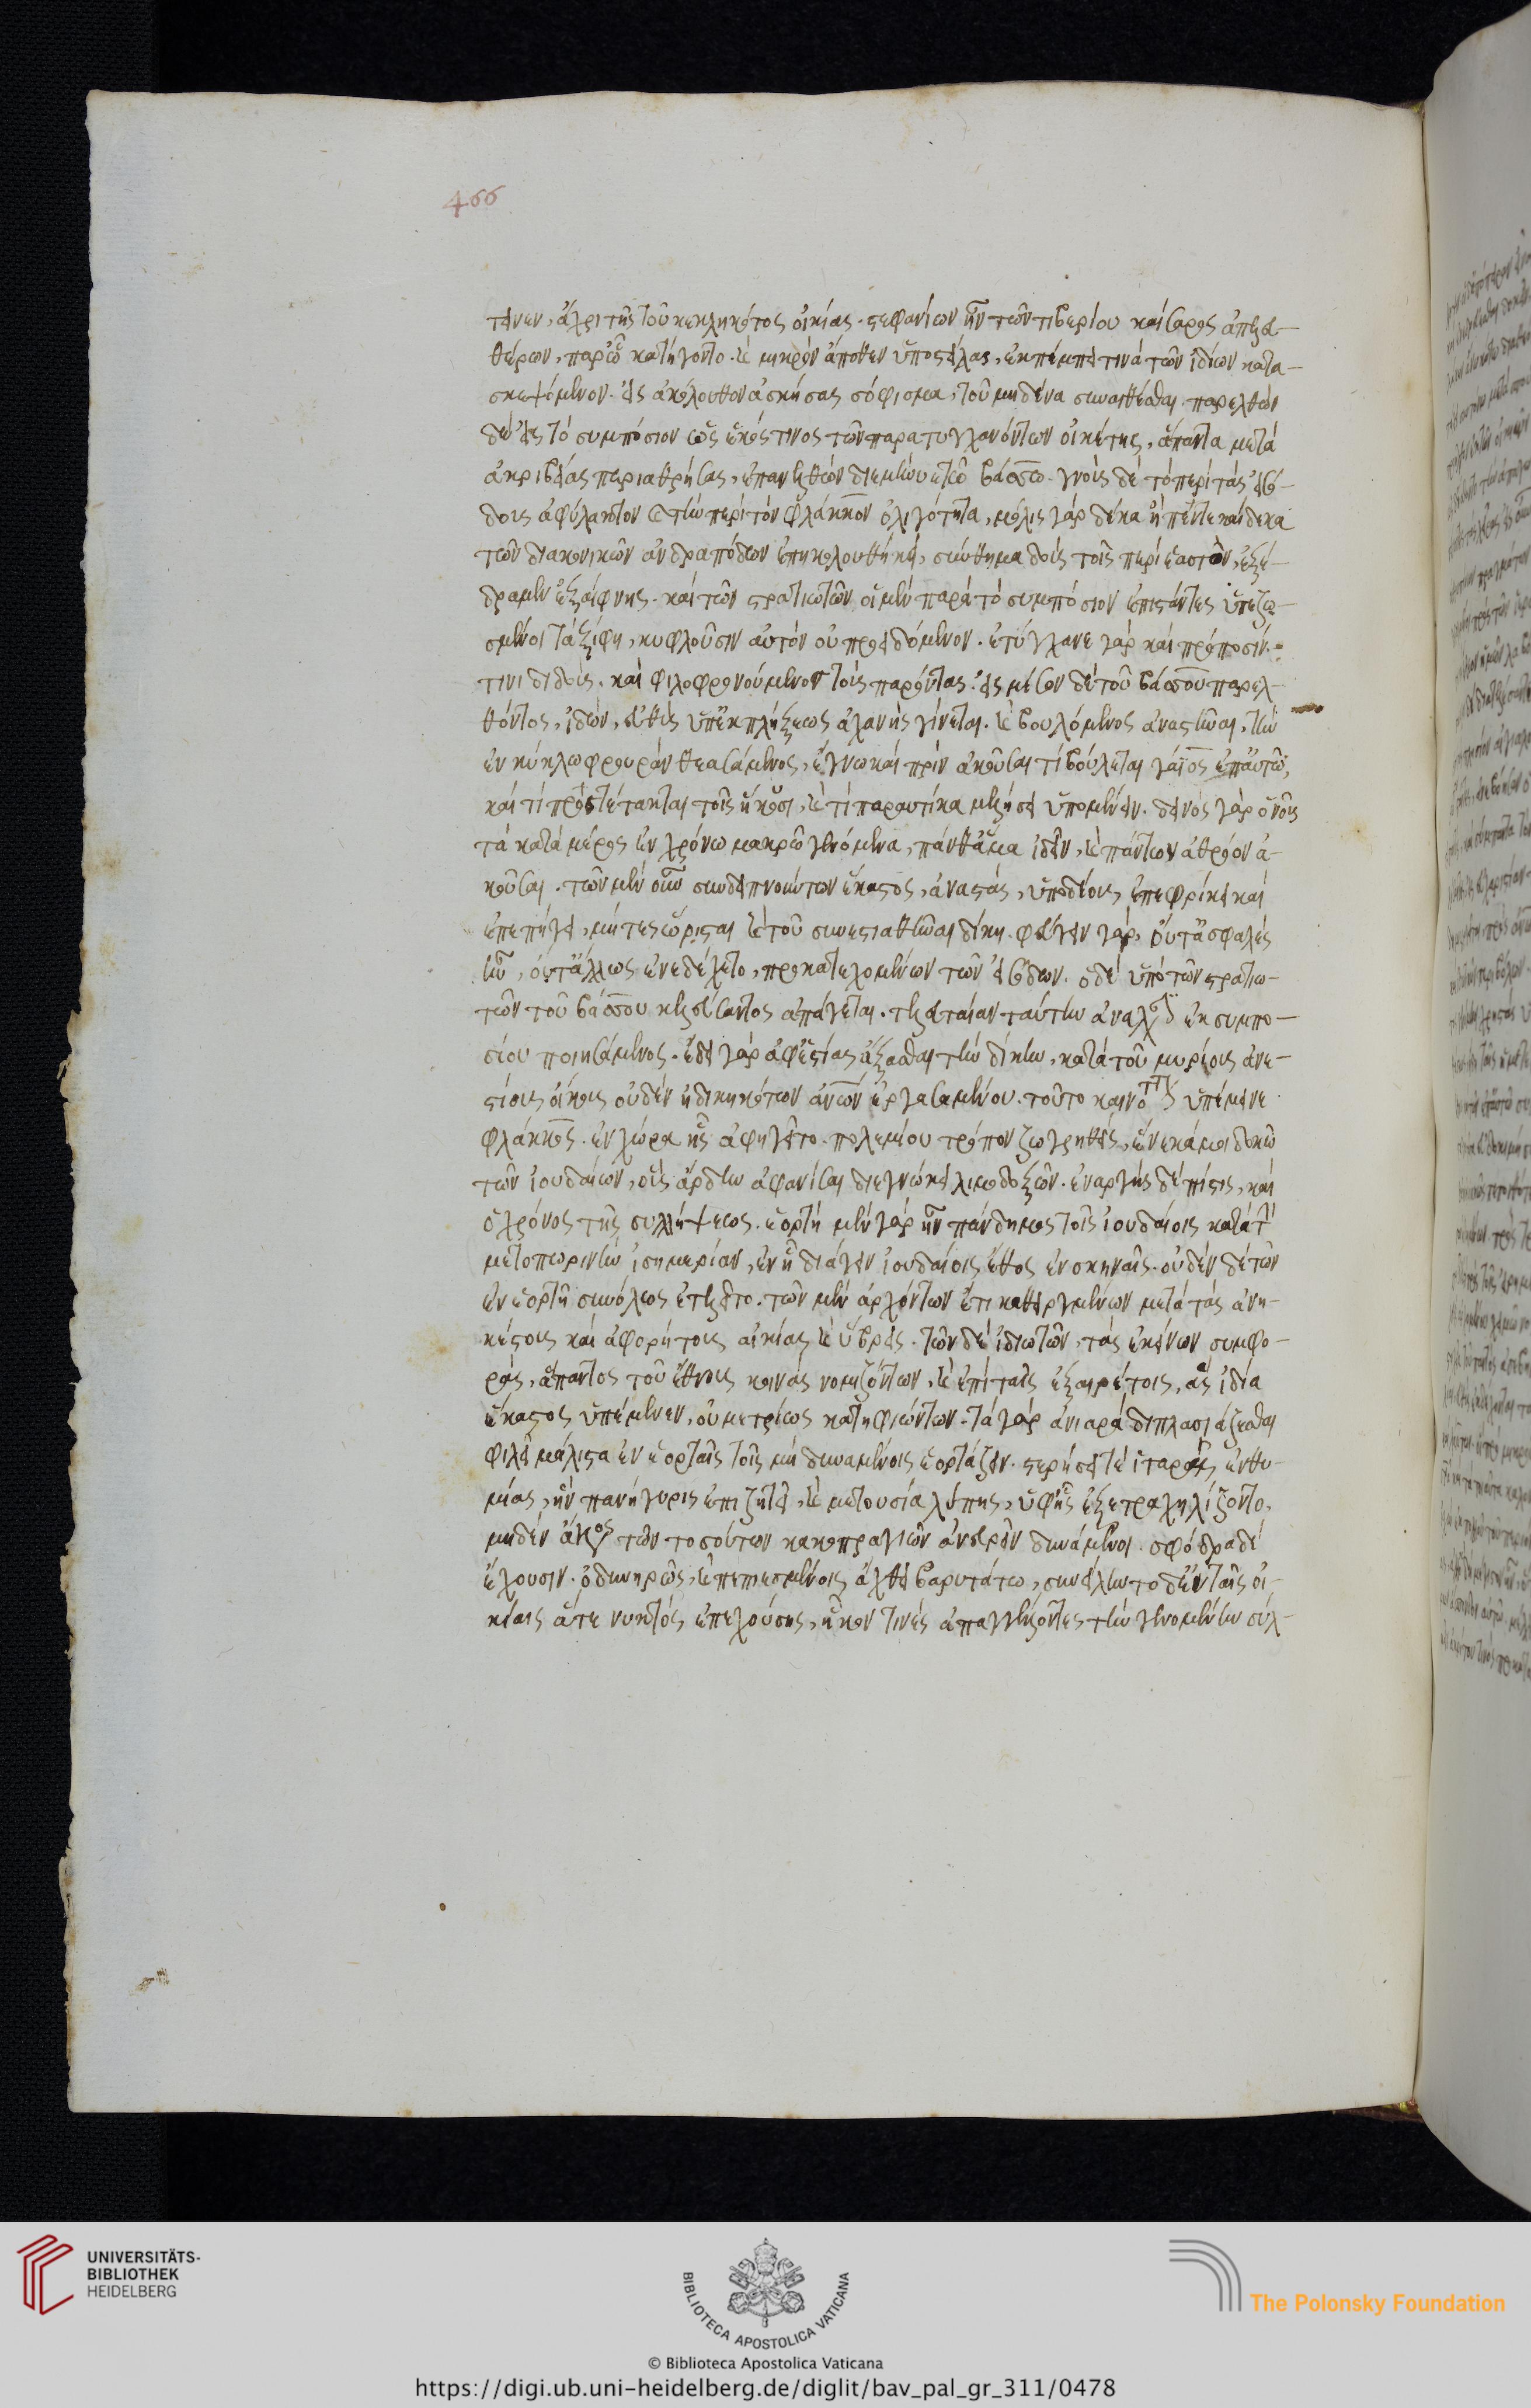 466
τεινεν, ἄχρι τῆς τοῦ κεκληκότος οἰκίας. στεφανίων ἦν τῶν τιβερίου καίσαρος ἀπελευ-
θέρων, παρ' ᾧ κατήγοντο. καὶ μικρὸν ἄποθεν ὑποστείλας, ἐκπέμπει τινὰ τῶν ἰδίων κατα-
σκεψόμενον. εἰς ἀκόλουθον ἀσκήσας σόφισμα, τοῦ μηδένα συναισθέσθαι. παρελθὼν
δὲ εἰς τὸ συμπόσιον ὡς ἑκός τινος τῶν παρατυγχανόντων οἰκέτης, ἅπαντα μετὰ
ἀκριβείας περιαθρήσας, ἐπανελθὼν διεμήνυε τῷ βάσσῳ. γνοὺς δὲ τὸ περὶ τὰς εἰσό-
δους ἀφύλακτον καὶ τὴν περὶ τὸν φλάκκον ὀλιγότητα, μόλις γὰρ δέκα ἢ πεντεκαίδεκα
τῶν διακονικῶν ἀνδραπόδων ἐπηκολουθήκει, σύνθημα δοὺς τοῖς περὶ ἑαυτὸν, ἐξέ-
δραμεν ἐξαίφνης. καὶ τῶν στρατιωτῶν οἱ μὲν παρὰ τὸ συμπόσιον ἐπιστάντες ὑπεζω-
σμένοι τὰ ξίφη, κυκλοῦσιν αὐτὸν οὐ προειδόμενον. ἐτύγχανε γὰρ καὶ πρόποσίν
τινι διδοὺς. καὶ φιλοφρονούμενος τοὺς παρόντας. εἰς μέσον δὲ τοῦ βάσσου παρελ-
θόντος, ἰδὼν, εὐθὺς ὑπ' ἐκπλήξεως ἀχανὴς γίνεται. καὶ βουλόμενος ἀναστῆναι, τὴν
ἐν κύκλῳ φρουρὰν θεασάμενος, ἔγνω καὶ πρὶν ἀκοῦσαι τί βούλεται γάϊος ἐπ' αὐτῷ,
καὶ τί προστέτακται τοῖς ἥκουσι, καὶ τί παραυτίκα μελήσει ὑπομένειν. δεινὸς γὰρ ὁ νοῦς
τὰ κατὰ μέρος ἐν χρόνῳ μακρῷ γενόμενα, πάνθ' ἅμα ἰδεῖν, καὶ πάντων ἀθρόον ἀ-
κοῦσαι. τῶν μὲν οὖν συνδειπνούντων ἕκαστος, ἀναστὰς, ὑπὸ δέους ἐπεφρίκει καὶ
ἐπεπήγει, μήτις ὥρισται καὶ τοῦ συνεστιαθῆναι δίκη. φεύγειν γὰρ, οὔτ' ἀσφαλὲς
ἦν, οὔτ' ἄλλως ἐνεδέχετο, προκατεχομένων τῶν εἰσόδων. ὁ δὲ ὑπὸ τῶν στρατιω-
τῶν τοῦ βάσσου κελεύσαντος ἀπάγεται. τελευταίαν ταύτην ἀναχ ἐκ συμπο-
σίου ποιησάμενος. ἔδει γὰρ ἀφ' ἑστίας ἄρξασθαι τὴν δίκην, κατὰ τοῦ μυρίους ἀνε-
στίους οἴκους οὐδὲν ἠδικηκότων ἀνθρώπων ἐργασαμένου. τοῦτο καινότ ὑπέμεινε
φλάκκος. ἐν χώρᾳ ἧς ἀφηγεῖτο. πολεμίου τρόπον ζωγρηθεὶς, ἕνεκά μοι δοκῶ
τῶν ἰουδαίων, οὓς ἄρδην ἀφανίσαι διεγνώκει λιμοδοξῶν. ἐναργὴς δὲ πίστις, καὶ
ὁ χρόνος τῆς συλλήψεως. ἑορτὴ μὲν γὰρ ἦν πάνδημος τοῖς ἰουδαίοις κατὰ τὴν
μετοπωρινὴν ἰσημερίαν, ἐν ᾗ διάγειν ἰουδαίοις ἔθος ἐν σκηναῖς. οὐδὲν δὲ τῶν
ἐν ἑορτῇ συνόλως ἐτελεῖτο. τῶν μὲν ἀρχόντων ἔτι καθειργμένων μετὰ τὰς ἀνη-
κέστους καὶ ἀφορήτους αἰκίας καὶ ὕβρεις. τῶν δὲ ἰδιωτῶν, τὰς ἐκείνων συμφο-
ρὰς, ἅπαντος τοῦ ἔθνους κοινὰς νομιζόντων, καὶ ἐπὶ ταῖς ἐξαιρέτοις, ἃς ἰδίᾳ
ἕκαστος ὑπέμενεν, οὐ μετρίως κατηφιώντων. τὰ γὰρ ἀνιαρὰ διπλασιάζεσθαι
φιλεῖ μάλιστα ἐν ἑορταῖς τοῖς μὴ δυναμένοις ἑορτάζειν. στερήσει τὲ ἱταρᾶς εὐθυ-
μίας, ἣν πανήγυρις ἐπιζητεῖ, καὶ μετουσίᾳ λύπης, ὑφ' ἧς ἐξετραχηλίζοντο,
μηδὲν ἄκος τῶν τοσούτων κακοπραγιῶν ἀνευρεῖν δυνάμενοι. σφόδρα δὲ
ἔχουσιν ὀδυνηρῶς, καὶ πεπιεσμένοις ἄχθει βαρυτάτῳ, συνείχοντο δ' ἐν ταῖς οἰ-
κίαις ἅτε νυκτὸς ἐπεχούσης, ἧκόν τινες ἀπαγγέλλοντες τὴν γενομένην σύλ-
UNIVERSITÄTS-
BIBLIOTHEK
HEIDELBERG
BIBLIOTECA APOSTOLICA VATICANA
The Polonsky Foundation
© Biblioteca Apostolica Vaticana
https://digi.ub.uni-heidelberg.de/diglit/bav_pal_gr_311/0478